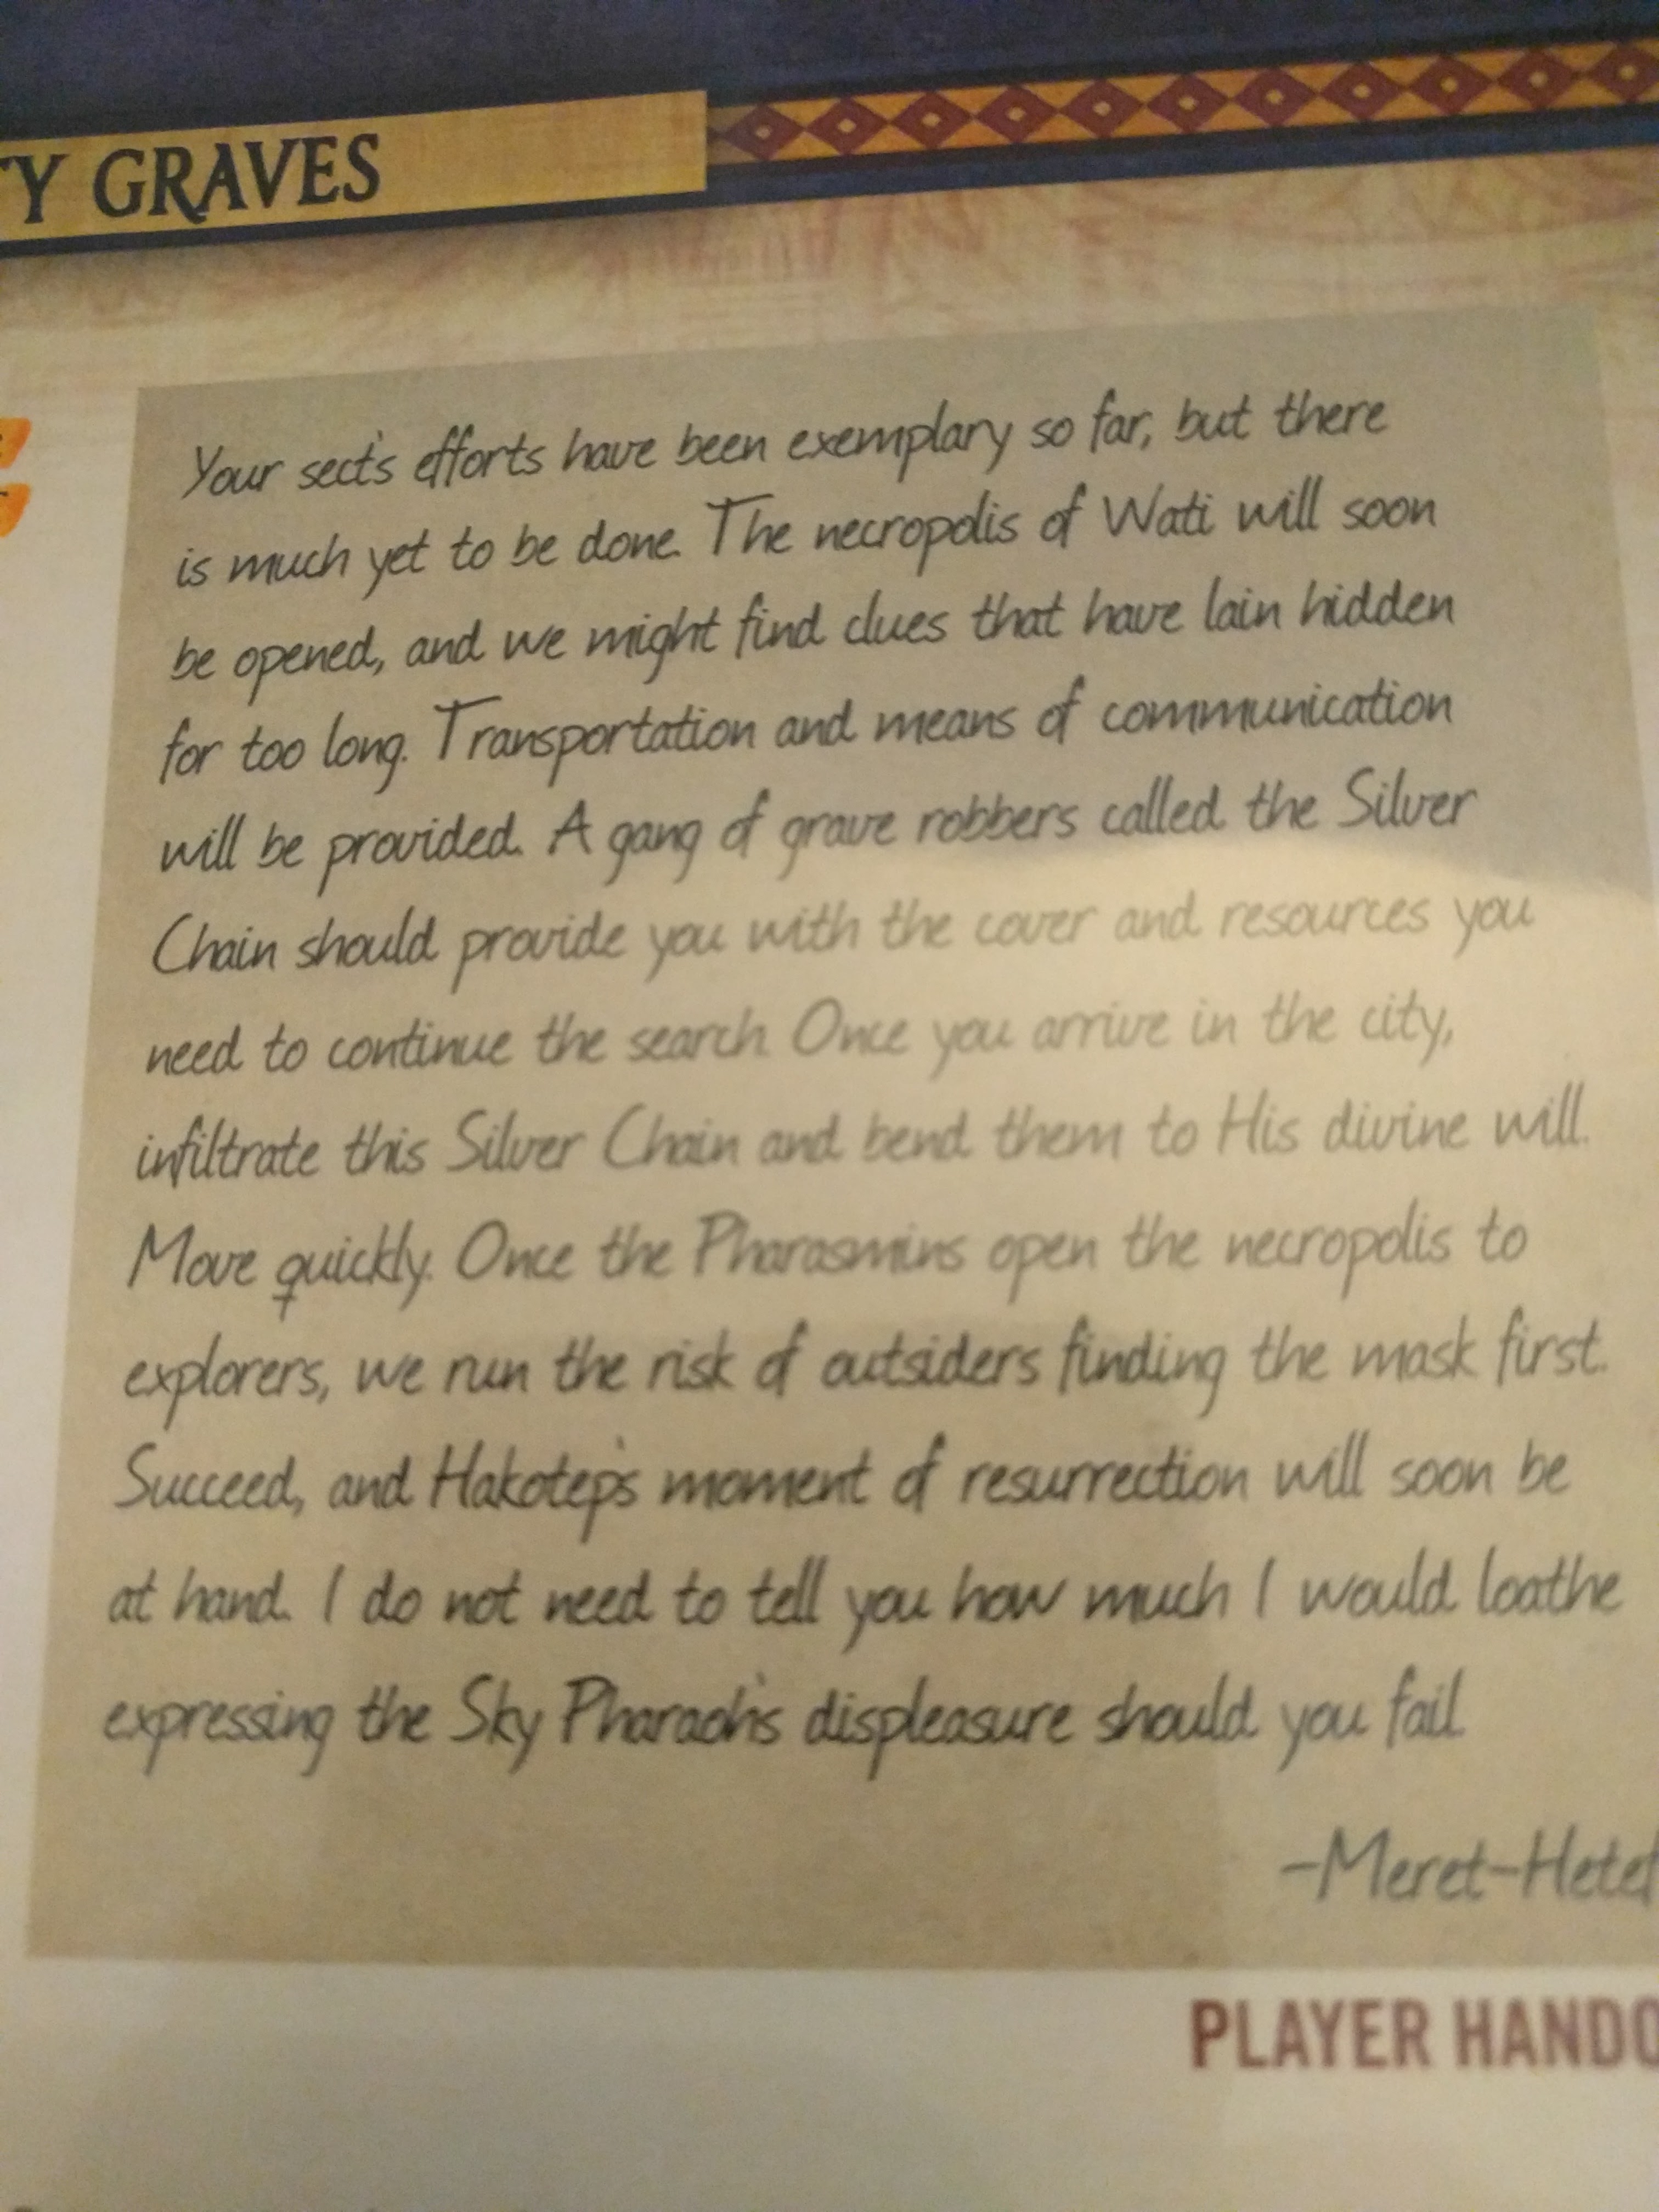 TY GRAVES
Your sect's efforts have been exemplary so far, but there
is much yet to be done. The necropolis of Wati will soon
be opened, and we might find clues that have lain hidden
for too long. Transportation and means of communication
will be provided. A gang of grave robbers called the Silver
Chain should provide you with the cover and resources you
need to continue the search. Once you arrive in the city,
infiltrate this Silver Chain and bend them to His divine will.
Move quickly. Once the Pharasmins open the necropolis to
explorers, we run the risk of outsiders finding the mask first.
Succeed, and Hakotep's moment of resurrection will soon be
at hand. I do not need to tell you how much I would loathe
expressing the Sky Pharaoh's displeasure should you fail.
-Meret-Hetef
PLAYER HANDO